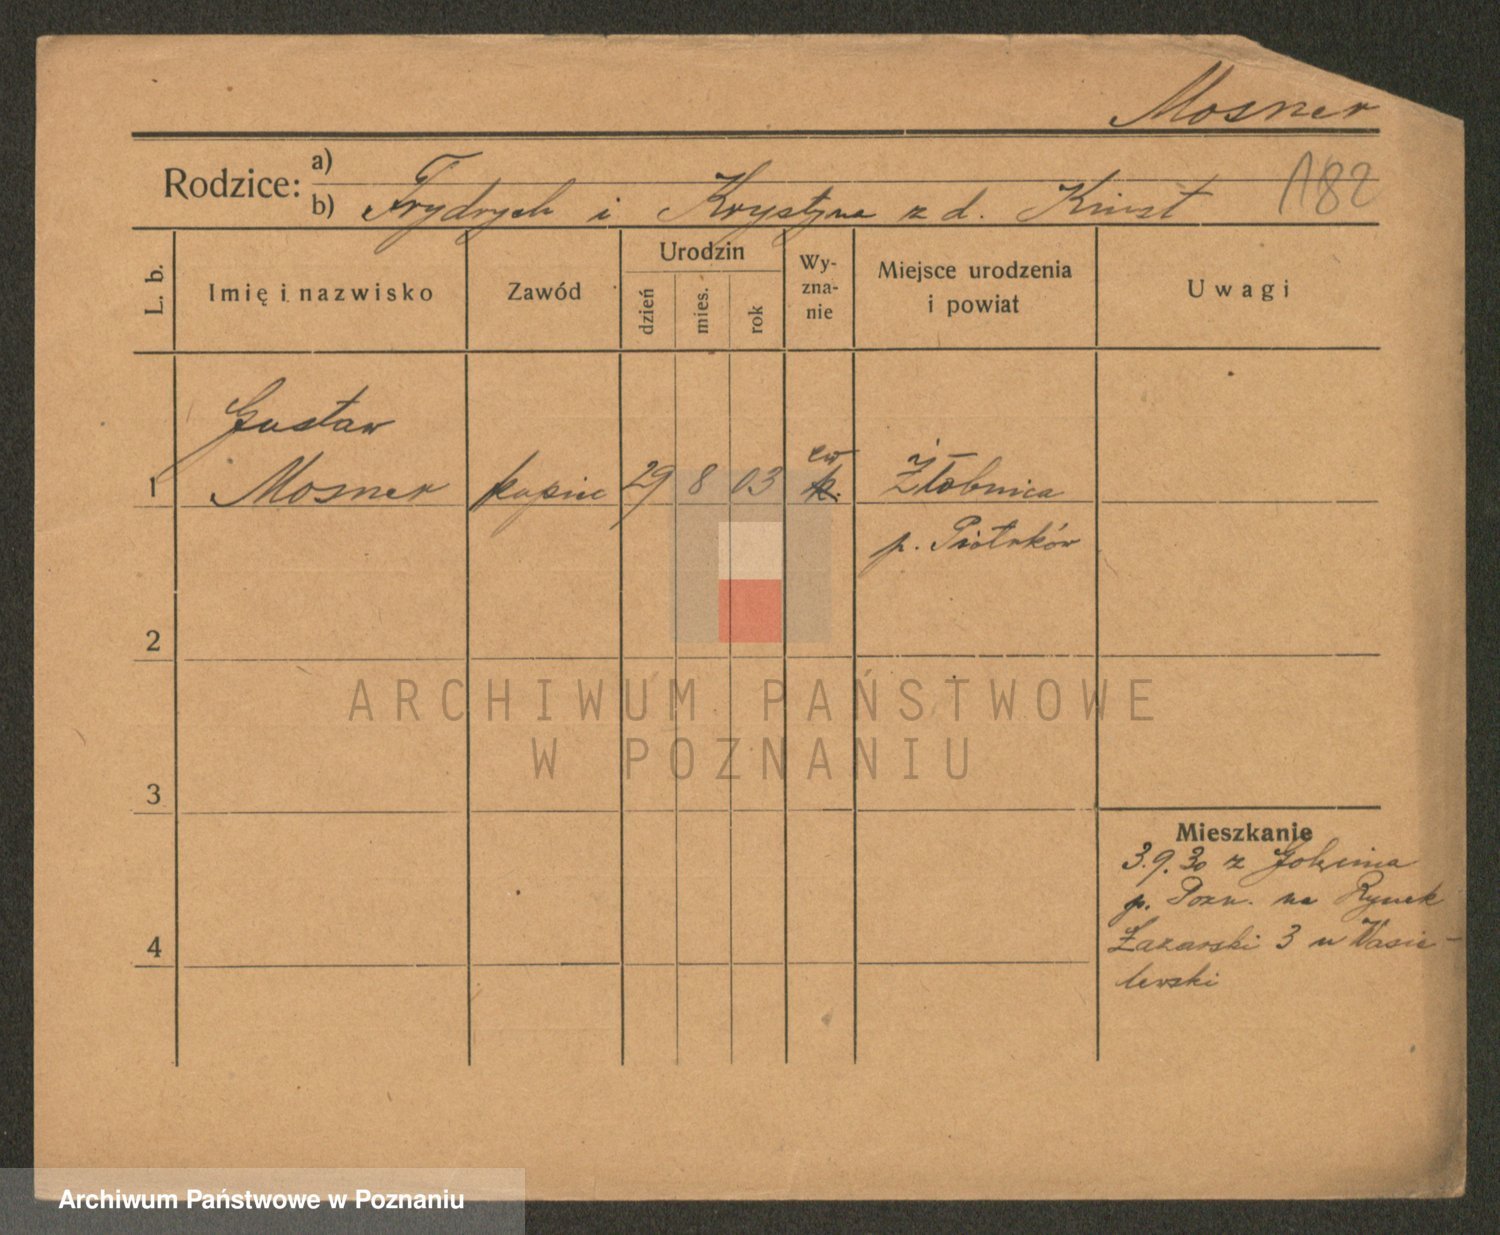 Mosner
Rodzice: a)
b) Frydrych i Krystyna z d.
182
L. b.
Imię i nazwisko
Zawód
Urodzin
dzień
mies.
rok
Wy-
zna-
nie
Miejsce urodzenia
i powiat
Uwagi
Gustaw
1 Mosner kupiec 29 8 03 ew k. Żłobnica
p. Piotrków
2
ARCHIWUM PAŃSTWOWE
W POZNANIU
3
Mieszkanie
3.9.30 z
p. Pozn. na Rynek
4
Łazarski 3 u Wasie-
lewski
Archiwum Państwowe w Poznaniu